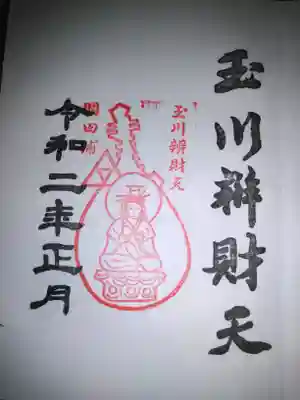 玉川辨財天
玉川辨財天
令和二年正月